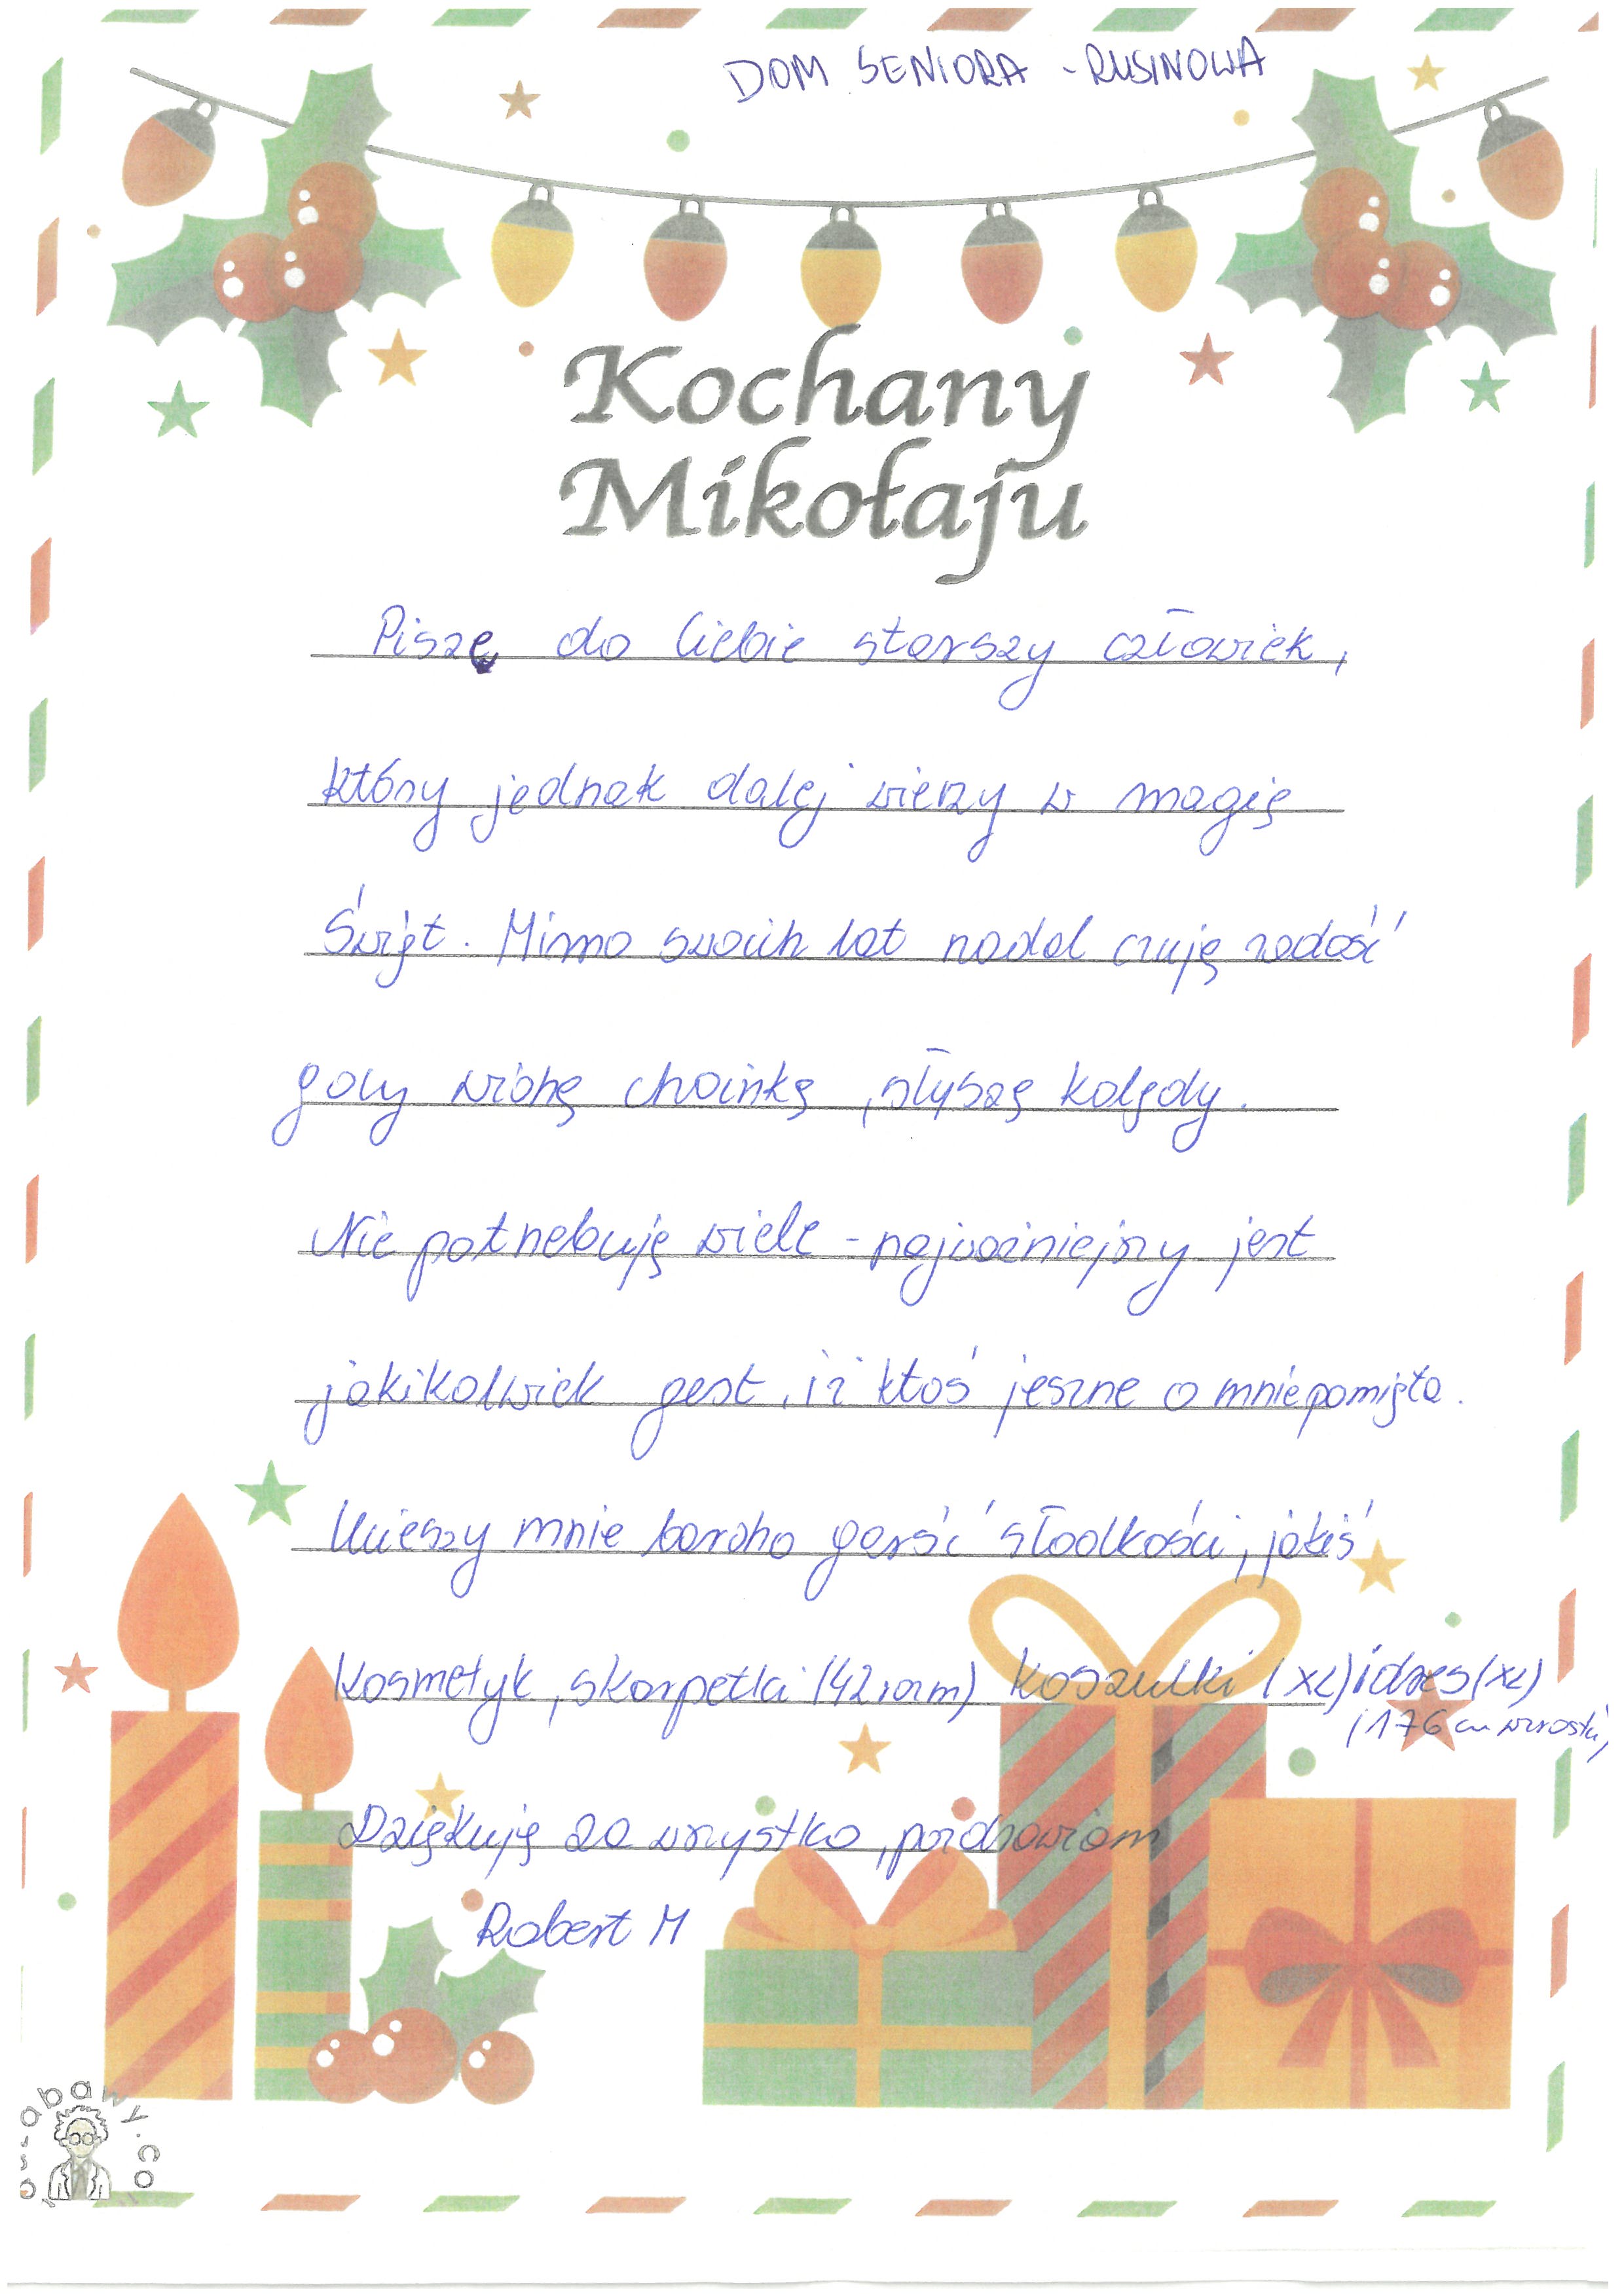 DOM SENIORA - RUSINOWA
Kochany
Mikołaju
Piszę do Ciebie starszy człowiek,
który jednak dalej wierzy w magię
Świąt. Mimo swoich lat nadal czuję radość
gdy widzę choinkę, słyszę kolędy.
Nie potrzebuję wiele - najważniejszy jest
jakikolwiek gest, iż ktoś jeszcze o mnie pamięta.
Ucieszy mnie bardzo garść słodkości, jakiś
kosmetyk, skarpetki (42 rozm) koszulki (XL) i dres (XL)
(176 cm wzrostu)
Dziękuję za wszystko, pozdrawiam
Robert M